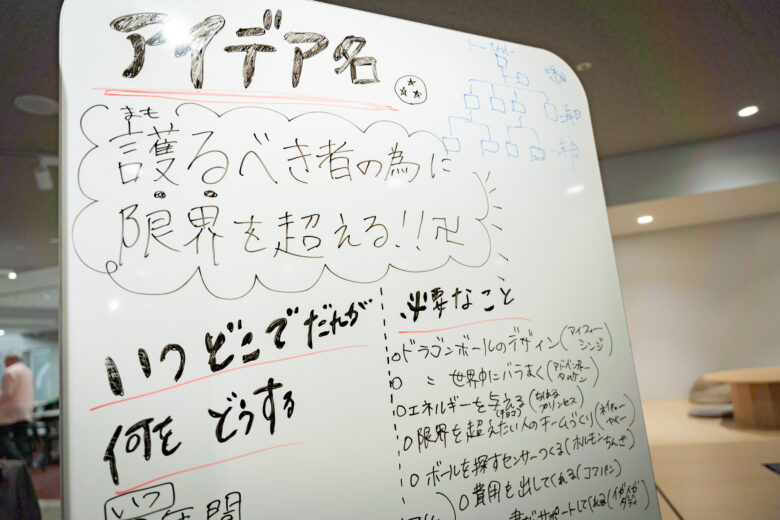 アイデア名
まも
護るべき者の為に
限界を超える!!卍
いつ どこで だれが
何を どうする
いつ
年間
必要なこと
○ドラゴンボールのデザイン(アイスィーシンジ)
○ 〃 世界中にバラまく
○エネルギーを与える
○限界を超えたい人のチームづくり
○ボールを探すセンサーつくる(ホルモンちんぎ)
○費用を出してくれる(コフパン)
サポートしてくれる